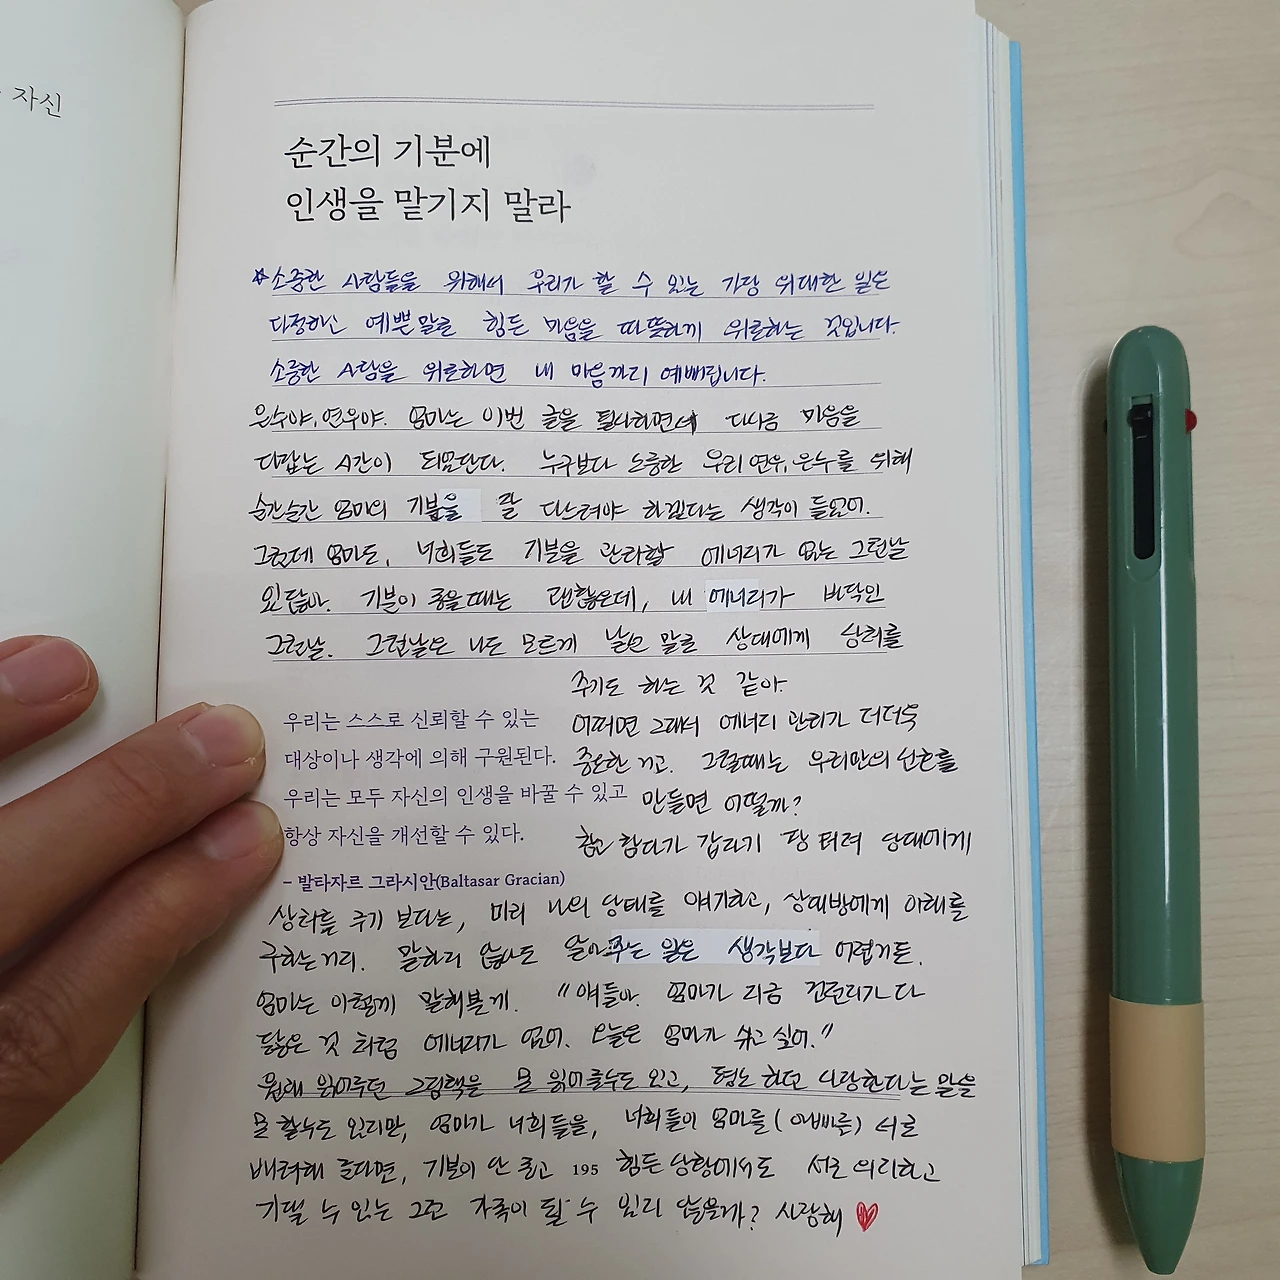 자신
순간의 기분에
인생을 맡기지 말라
☆소중한 사람들을 위해서 우리가 할 수 있는 가장 위대한 일은
다정하신 예쁜말로 힘든 마음을 따뜻하게 위로하는 것입니다.
소중한 사람을 위로하면 내 마음까지 예뻐집니다.
은수야, 연우야. 엄마는 이번 글을 필사하면서 다시금 마음을
다잡는 시간이 되었단다. 누구보다 소중한 우리 연우, 은수를 위해
순간순간 엄마의 기분을 잘 다스려야 하겠다는 생각이 들었어.
그런데 엄마도, 너희들도 기분을 관리할 에너지가 없는 그런날
있잖아. 기분이 좋을때는 괜찮은데, 내 에너지가 바닥인
그런날. 그런날은 나도 모르게 날선 말로 상대에게 상처를
주기도 하는 것 같아.
우리는 스스로 신뢰할 수 있는
대상이나 생각에 의해 구원된다.
우리는 모두 자신의 인생을 바꿀 수 있고
항상 자신을 개선할 수 있다.
– 발타자르 그라시안(Baltasar Gracian)
어쩌면 그래서 에너지 관리가 더더욱
중요한 거고. 그럴때는 우리만의 신호를
만들면 어떨까?
참고 참다가 갑자기 팡 터져 상대에게
상처를 주기 보다는, 미리 나의 상태를 얘기하고, 상대방에게 이해를
구하는거지. 말하지 않아도 알아주는 일은 생각보다 어렵거든.
엄마는 이렇게 말해볼게. "얘들아. 엄마가 지금 건전지가 다
닳은 것 처럼 에너지가 없어. 오늘은 엄마가 쉬고 싶어."
원래 읽어주던 그림책을 못 읽어줄수도 있고, 평소 하던 사랑한다는 말을
못 할수도 있지만, 엄마가 너희들을, 너희들이 엄마를(아빠를) 서로
배려해 준다면, 기분이 안 좋고 힘든 상황에서도 서로 의지하고
195
기댈 수 있는 그런 가족이 될 수 있지 않을까? 사랑해